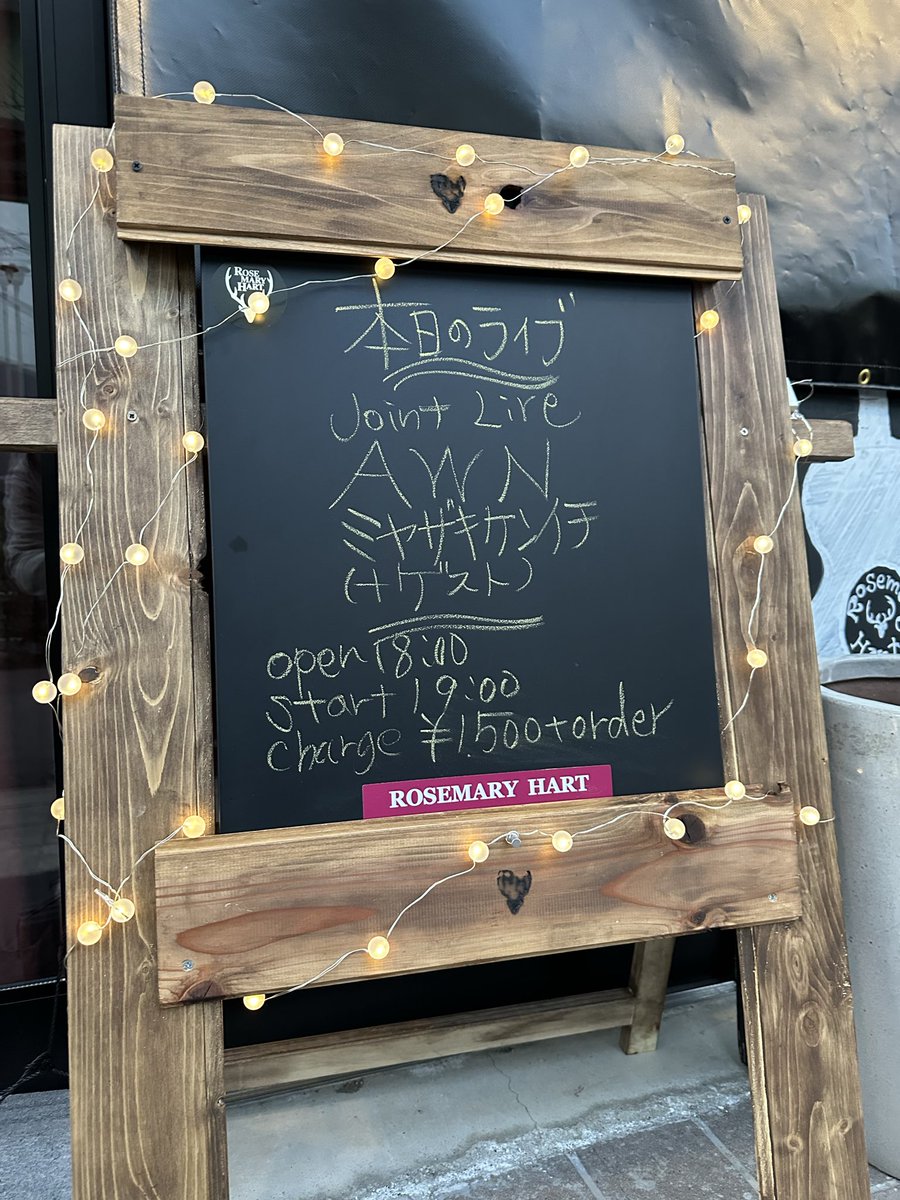 ROSE
MARY
HART
本日のライブ
Joint Live
AWN
ミヤザキカンイチ
(+ゲスト)
open 18:00
start 19:00
charge ¥1.500+order
ROSEMARY HART